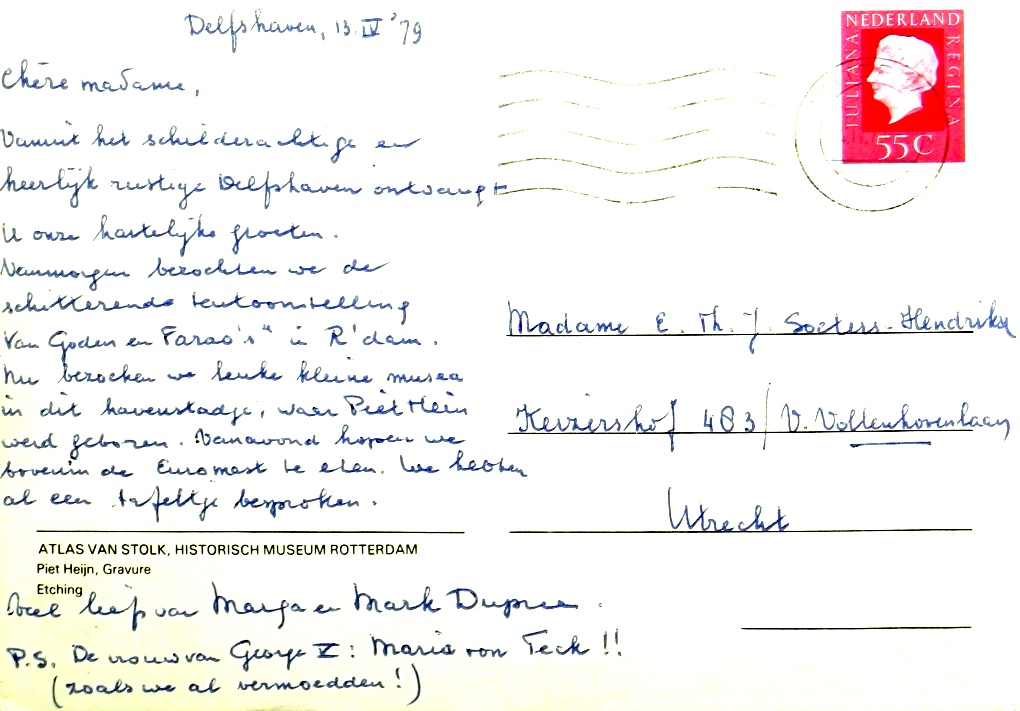 Delfshaven, 13 IV '79
Chère madame,
Vanuit het schilderachtige en
heerlijk rustige Delfshaven ontvangt
U onze hartelijke groeten.
Vanmorgen bezochten we de
schitterende tentoonstelling
"Van Goden en Farao's" in R'dam.
Nu bezoeken we leuke kleine musea
in dit havenstadje, waar Piet Hein
werd geboren. Vanavond hopen we
bovenin de Euromast te eten. We hebben
al een tafeltje besproken.
ATLAS VAN STOLK, HISTORISCH MUSEUM ROTTERDAM
Piet Heijn, Gravure
Etching
Veel liefs van Marga en Mark Dupree.
P.S. De vrouw van George V: Maria von Teck!!
(zoals we al vermoedden!)
NEDERLAND
JULIANA REGINA
55 C
Madame E. Th. J. Soeters-Hendrikse
Keizershof 403 / V. Vollenhovenlaan
Utrecht